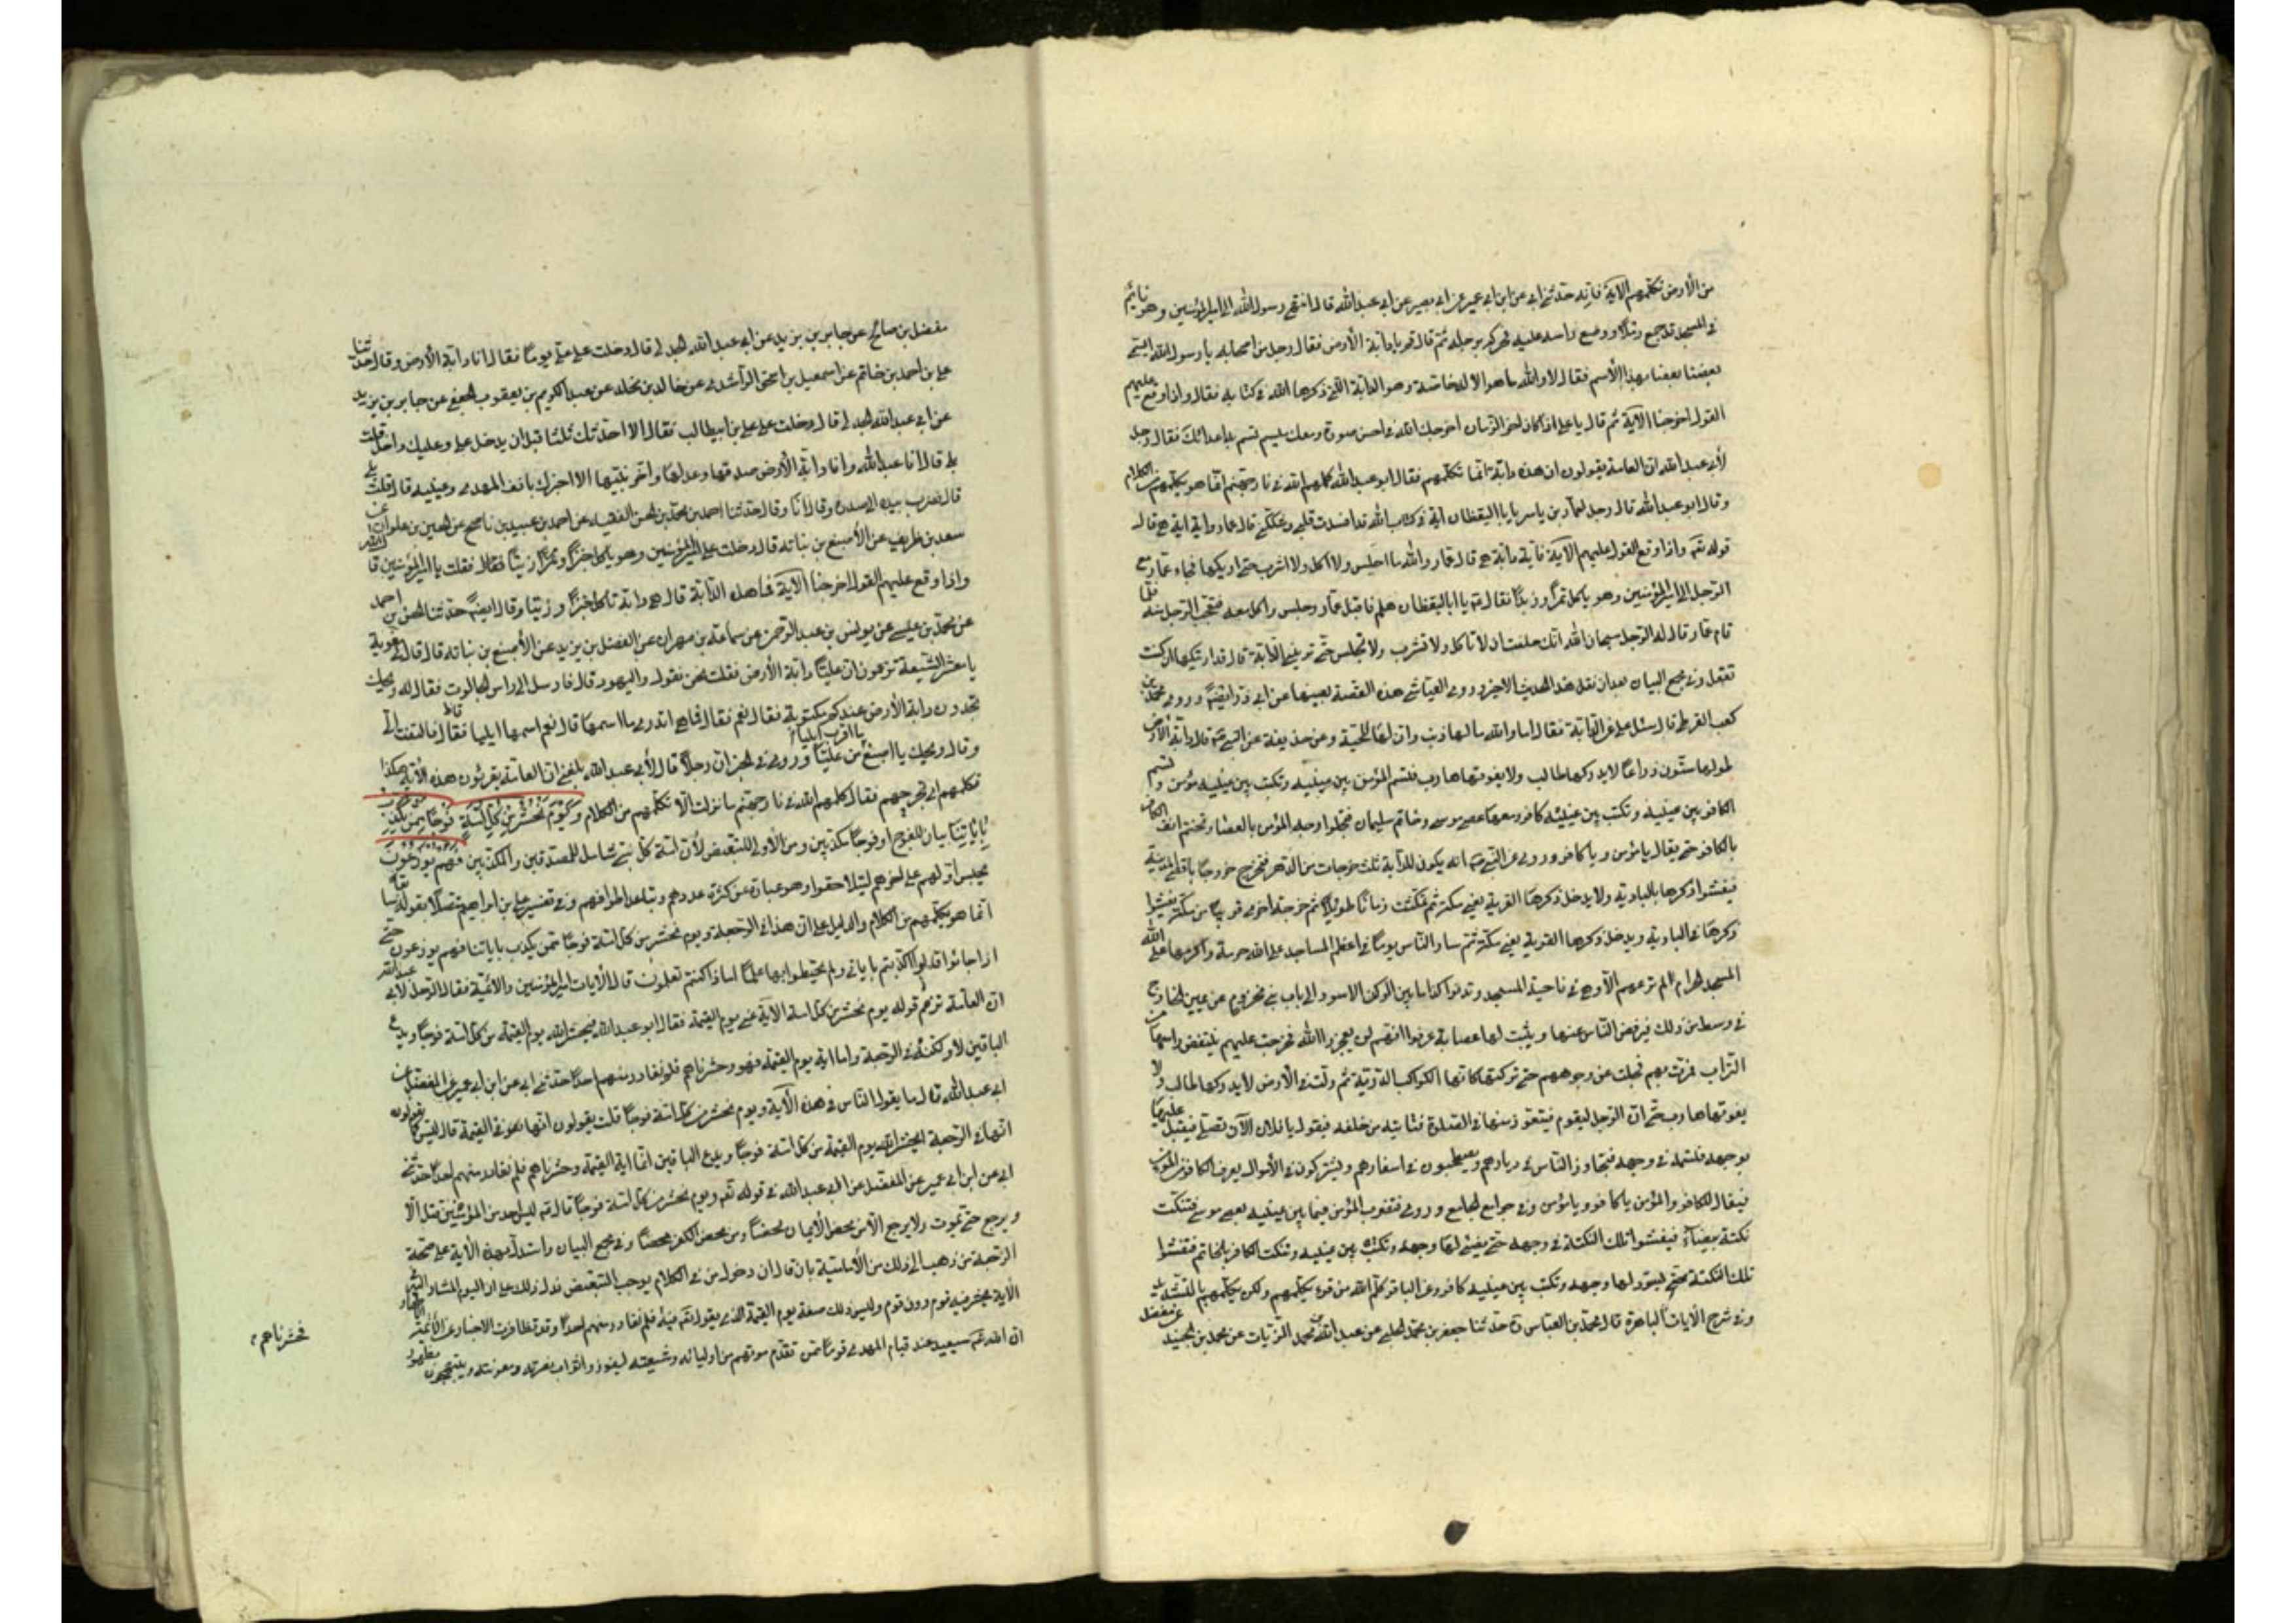 من الأرض تكلمهم الآية فانه حدثنى ابى عن ابن ابى عمير عن ابى بصير عن ابى عبد الله قال انتهى رسول الله الى امير المؤمنين وهو نائم
فى المسجد قد جمع رملا ووضع راسه عليه فحركه برجله ثم قال قم يا دابة الأرض فقال رجل من اصحابه يا رسول الله ايسمى
بعضنا بعضا بهذا الأسم فقال لا والله ما هو الا له خاصة وهو الدابة التى ذكرها الله فى كتابه فقال واذا وقع عليهم
القول اخرجنا الآية ثم قال يا على اذا كان اخر الزمان اخرجك الله فى احسن صورة ومعك ميسم تسم به اعدائك فقال رجل
لأبى عبد الله ان العامة يقولون ان هذه دابة انما تكلمهم فقال ابو عبد الله كلمهم الله فى نار جهنم انما هو يكلمهم من الكلام
وقال ابو عبد الله قال رجل لعمار بن ياسر يا ابا اليقظان اية فى كتاب الله قد افسدت قلبى وشككتنى قال عمار واية اية هى قال
قوله تعه واذا وقع القول عليهم الآية فاية دابة هى قال عمار والله ما اجلس ولا اكل ولا اشرب حتى اريكها فجاء عمار مع
الرجل الى امير المؤمنين وهو ياكل تمرا وزبدا فقال له يا ابا اليقظان هلم فاقبل عمار وجلس واكل معه فتعجب الرجل منه فلما
قام عمار قال له الرجل سبحان الله انك حلفت ان لا تاكل ولا تشرب ولا تجلس حتى ترينى الدابة قال قد اريتكها ان كنت
تعقل وفى مجمع البيان بعد ان نقل هذا الحديث الاخير وروى العياشى هذه القصة بعينها عن ابى ذر ايضا وروى محمد بن
كعب القرظى قال سئل على عن الدابة فقال اما والله ما لها ذنب وان لها للحية وعن حذيفة عن النبى قال دابة الأرض
طولها ستون ذراعا لا يدركها طالب ولا يفوتها هارب فتسم المؤمن بين عينيه وتكتب بين عينيه مؤمن وتسم
الكافر بين عينيه وتكتب بين عينيه كافر ومعها عصى موسى وخاتم سليمان فتجلوا وجه المؤمن بالعصا وتختم انف الكافر
بالخاتم حتى يقال يا مؤمن ويا كافر وروى عن النبى انه يكون للدابة ثلث خرجات من الدهر فتخرج خروجا باقصى المدينة
فيفشوا ذكرها بالبادية ولا يدخل ذكرها القرية يعنى مكة ثم تمكث زمانا طويلا ثم تخرج خرجة اخرى قريبا من مكة فيفشوا
ذكرها فى البادية ويدخل ذكرها القرية يعنى مكة ثم سار الناس يوما فى اعظم المساجد على الله حرمة واكرمها على الله
المسجد الحرام لم ترعهم الا وهى فى ناحية المسجد وتدنوا كذا ما بين الركن الاسود الى باب بنى مخزوم عن يمين الخارج
فى وسط من ذلك فيرفض الناس عنها ويثبت لها عصابة عرفوا انهم لن يعجزوا الله فخرجت عليهم تنفض راسها من
التراب فمرت بهم فجلت عن وجوههم حتى تركتها كانها الكواكب الدرية ثم ولت فى الأرض لا يدركها طالب ولا
يفوتها هارب حتى ان الرجل ليقوم فيتعوذ منها فى الصلوة فتاتيه من خلفه فيقول يا فلان الآن تصلى فيقبل عليها
بوجهه فتسمه فى وجهه فيتجاور الناس فى ديارهم ويصطحبون فى اسفارهم ويشتركون فى الأموال يعرف الكافر من المؤمن
فيقال للكافر وللمؤمن يا كافر ويا مؤمن وفى جوامع الجامع وروى فتضرب المؤمن فيما بين عينيه بعصى موسى فتنكت
نكتة بيضاء فيفشوا تلك النكتة فى وجهه حتى يضىء لها وجهه وتكتب بين عينيه وتنكت الكافر بالخاتم فتفشوا
تلك النكتة حتى ليسود لها وجهه وتكتب بين عينيه كافر وعن الباقر كلم الله من قرء تكلمهم ولكن تكلمهم بالتشديد
وفى شرح الآيات الباهرة قال محمد بن العباس ره حدثنا جعفر بن محمد الحلبى عن عبد الله بن محمد الزيات عن محمد بن الجنيد عن مفضل
مفضل بن صالح عن جابر بن يزيد عن ابى عبد الله الجدلى قال دخلت على على يوما فقال انا دابة الأرض وقال حدثنا
على بن احمد بن خاتم عن اسمعيل بن اسحق الراشدى عن خالد بن مخلد عن عبد الكريم بن يعقوب الجعفى عن جابر بن يزيد
عن ابى عبد الله الجدلى قال دخلت على على بن ابيطالب فقال الا احدثك ثلثا قبل ان يدخل على وعليك داخل قلت
بلى قال انا عبد الله وانا دابة الأرض صدقها وعدلها واخو نبيها الا اخبرك بانف المهدى وعينيه قال قلت بلى
قال فضرب بيده الى صدره وقال انا وقال حدثنا احمد بن محمد بن الحسن الفقيه عن احمد بن عبيد بن ناصح عن الحسين بن علوان عن
سعد بن طريف عن الأصبغ بن نباته قال دخلت على امير المؤمنين وهو ياكل خبزا وخلا وزيتا فقلت يا امير المؤمنين قال الله
واذا وقع عليهم القول اخرجنا الآية فما هذه الدابة قال هى دابة تاكل خبزا وخلا وزيتا وقال ايضا حدثنا الحسين بن احمد
عن محمد بن عيسى عن يونس بن عبد الرحمن عن سماعة بن مهران عن الفضل بن يزيد عن الأصبغ بن نباته قال قال لى معوية
يا معشر الشيعة تزعمون ان عليا دابة الأرض فقلت نحن نقول واليهود قال فارسل الى راس الجالوت فقال له ويحك
تجدون دابة الأرض عندكم مكتوبة فقال نعم فقال فما هى اتدرى ما اسمها قال نعم اسمها ايليا قال فالتفت الى
وقال ويحك يا اصبغ ما اقرب ايليا من عليا وروى فى الخبر ان رجلا قال لأبى عبد الله بلغنى ان العامة يقرئون هذه الآية هكذا
تكلمهم اى تجرحهم فقال كلمهم الله فى نار جهنم ما نزلت الا تكلمهم من الكلام وَيَوْمَ نَحْشُرُ مِنْ كُلِّ اُمَّةٍ فَوْجًا مِمَّنْ يُكَذِّبُ
بِاٰيَاتِنَا بيان للفوج اى فوجا مكذبين ومن الأولى للتبعيض لأن امة كل نبى شامل للمصدقين والمكذبين فَهُمْ يُوزَعُونَ
يحبس اولهم على اخرهم ليتلاحقوا وهو عبارة عن كثرة عددهم وتباعد اطرافهم وفى تفسير على بن ابراهيم متصلا بقوله سابقا
انما هو يكلمهم من الكلام والدليل على ان هذا فى الرجعة ويوم نحشر من كل امة فوجا ممن يكذب باياتنا فهم يوزعون حتى
اذا جاؤا قال اكذبتم باياتى ولم تحيطوا بها علما اماذا كنتم تعملون قال الآيات امير المؤمنين والائمة فقال الرجل لأبى عبد الله
ان العامة تزعم قوله يوم نحشر من كل امة الآية عنى يوم القيمة فقال ابو عبد الله فيحشر الله يوم القيمة من كل امة فوجا ويدع
الباقين لا ولكنه فى الرجعة واما اية يوم القيمة فهو وحشرناهم فلم نغادر منهم احدا حدثنى ابى عن ابن ابى عمير عن المفضل عن
ابى عبد الله قال ما يقول الناس فى هذه الآية ويوم نحشر من كل امة فوجا قلت يقولون انها فى القيمة قال ليس كما يقولون
انها فى الرجعة ايحشر الله يوم القيمة من كل امة فوجا ويدع الباقين انما اية القيمة وحشرناهم فلم نغادر منهم احدا حدثنى
ابى عن ابن ابى عمير عن المفضل عن ابى عبد الله فى قوله تعه ويوم نحشر من كل امة فوجا قال ليس احد من المؤمنين قتل الا
ويرجع حتى يموت ولا يرجع الا من محض الأيمان محضا ومن محض الكفر محضا وفى مجمع البيان واستدل بهذه الآية على صحة
الرجعة من ذهب الى ذلك من الأمامية بان قال ان دخول من فى الكلام يوجب التبعيض فدل ذلك على ان اليوم المشار اليه فى
الآية يحشر فيه قوم دون قوم وليس ذلك صفة يوم القيمة الذى يقول فيه وحشرناهم فلم نغادر منهم احدا وقد تظاهرت الاخبار عن الأئمة
ان الله تعه سيعيد عند قيام المهدى قوما ممن تقدم موتهم من اوليائه وشيعته ليفوزوا بثواب نصرته ومعونته ويبتهجون بظهور
فحشرناهم